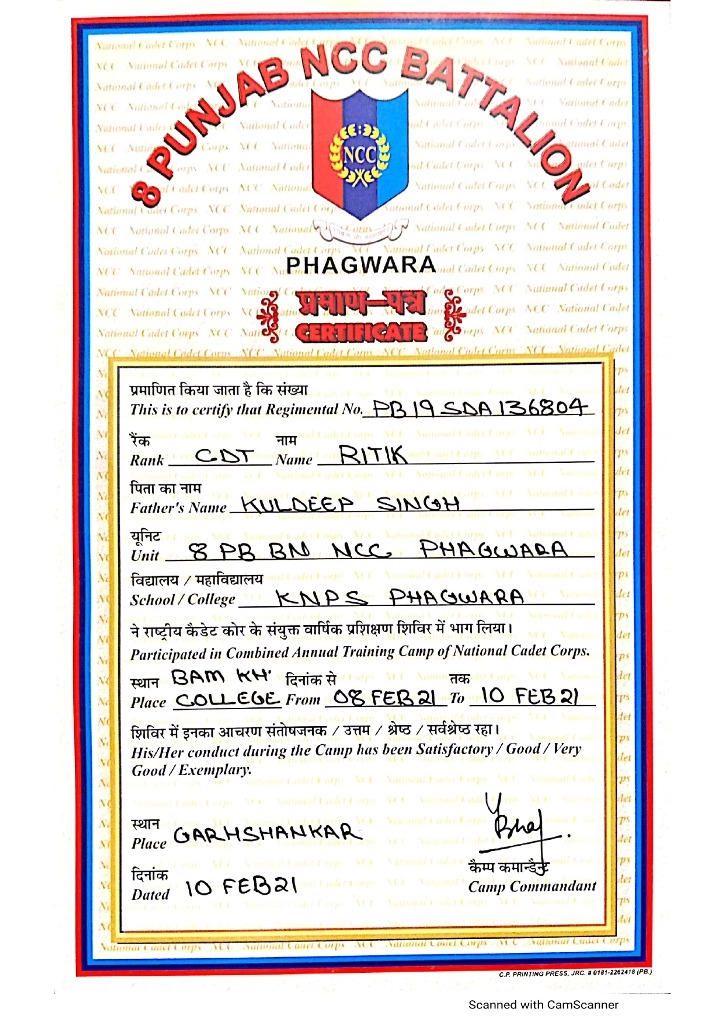 8 PUNJAB NCC BATTALION
NCC
PHAGWARA
प्रमाण-पत्र
CERTIFICATE
प्रमाणित किया जाता है कि संख्या
This is to certify that Regimental No. PB19SDA136804
रैंक नाम
Rank CDT Name RITIK
पिता का नाम
Father's Name KULDEEP SINGH
यूनिट
Unit 8 PB BN NCC PHAGWARA
विद्यालय / महाविद्यालय
School / College KNPS PHAGWARA
ने राष्ट्रीय कैडेट कोर के संयुक्त वार्षिक प्रशिक्षण शिविर में भाग लिया।
Participated in Combined Annual Training Camp of National Cadet Corps.
स्थान BAM KH' दिनांक से तक
Place COLLEGE From 08 FEB 21 To 10 FEB 21
शिविर में इनका आचरण संतोषजनक / उत्तम / श्रेष्ठ / सर्वश्रेष्ठ रहा।
His/Her conduct during the Camp has been Satisfactory / Good / Very
Good / Exemplary.
स्थान
Place GARHSHANKAR
दिनांक
Dated 10 FEB 21
कैम्प कमान्डैन्ट
Camp Commandant
C.P. PRINTING PRESS, JRC. # 0181-2262418 (PB.)
Scanned with CamScanner